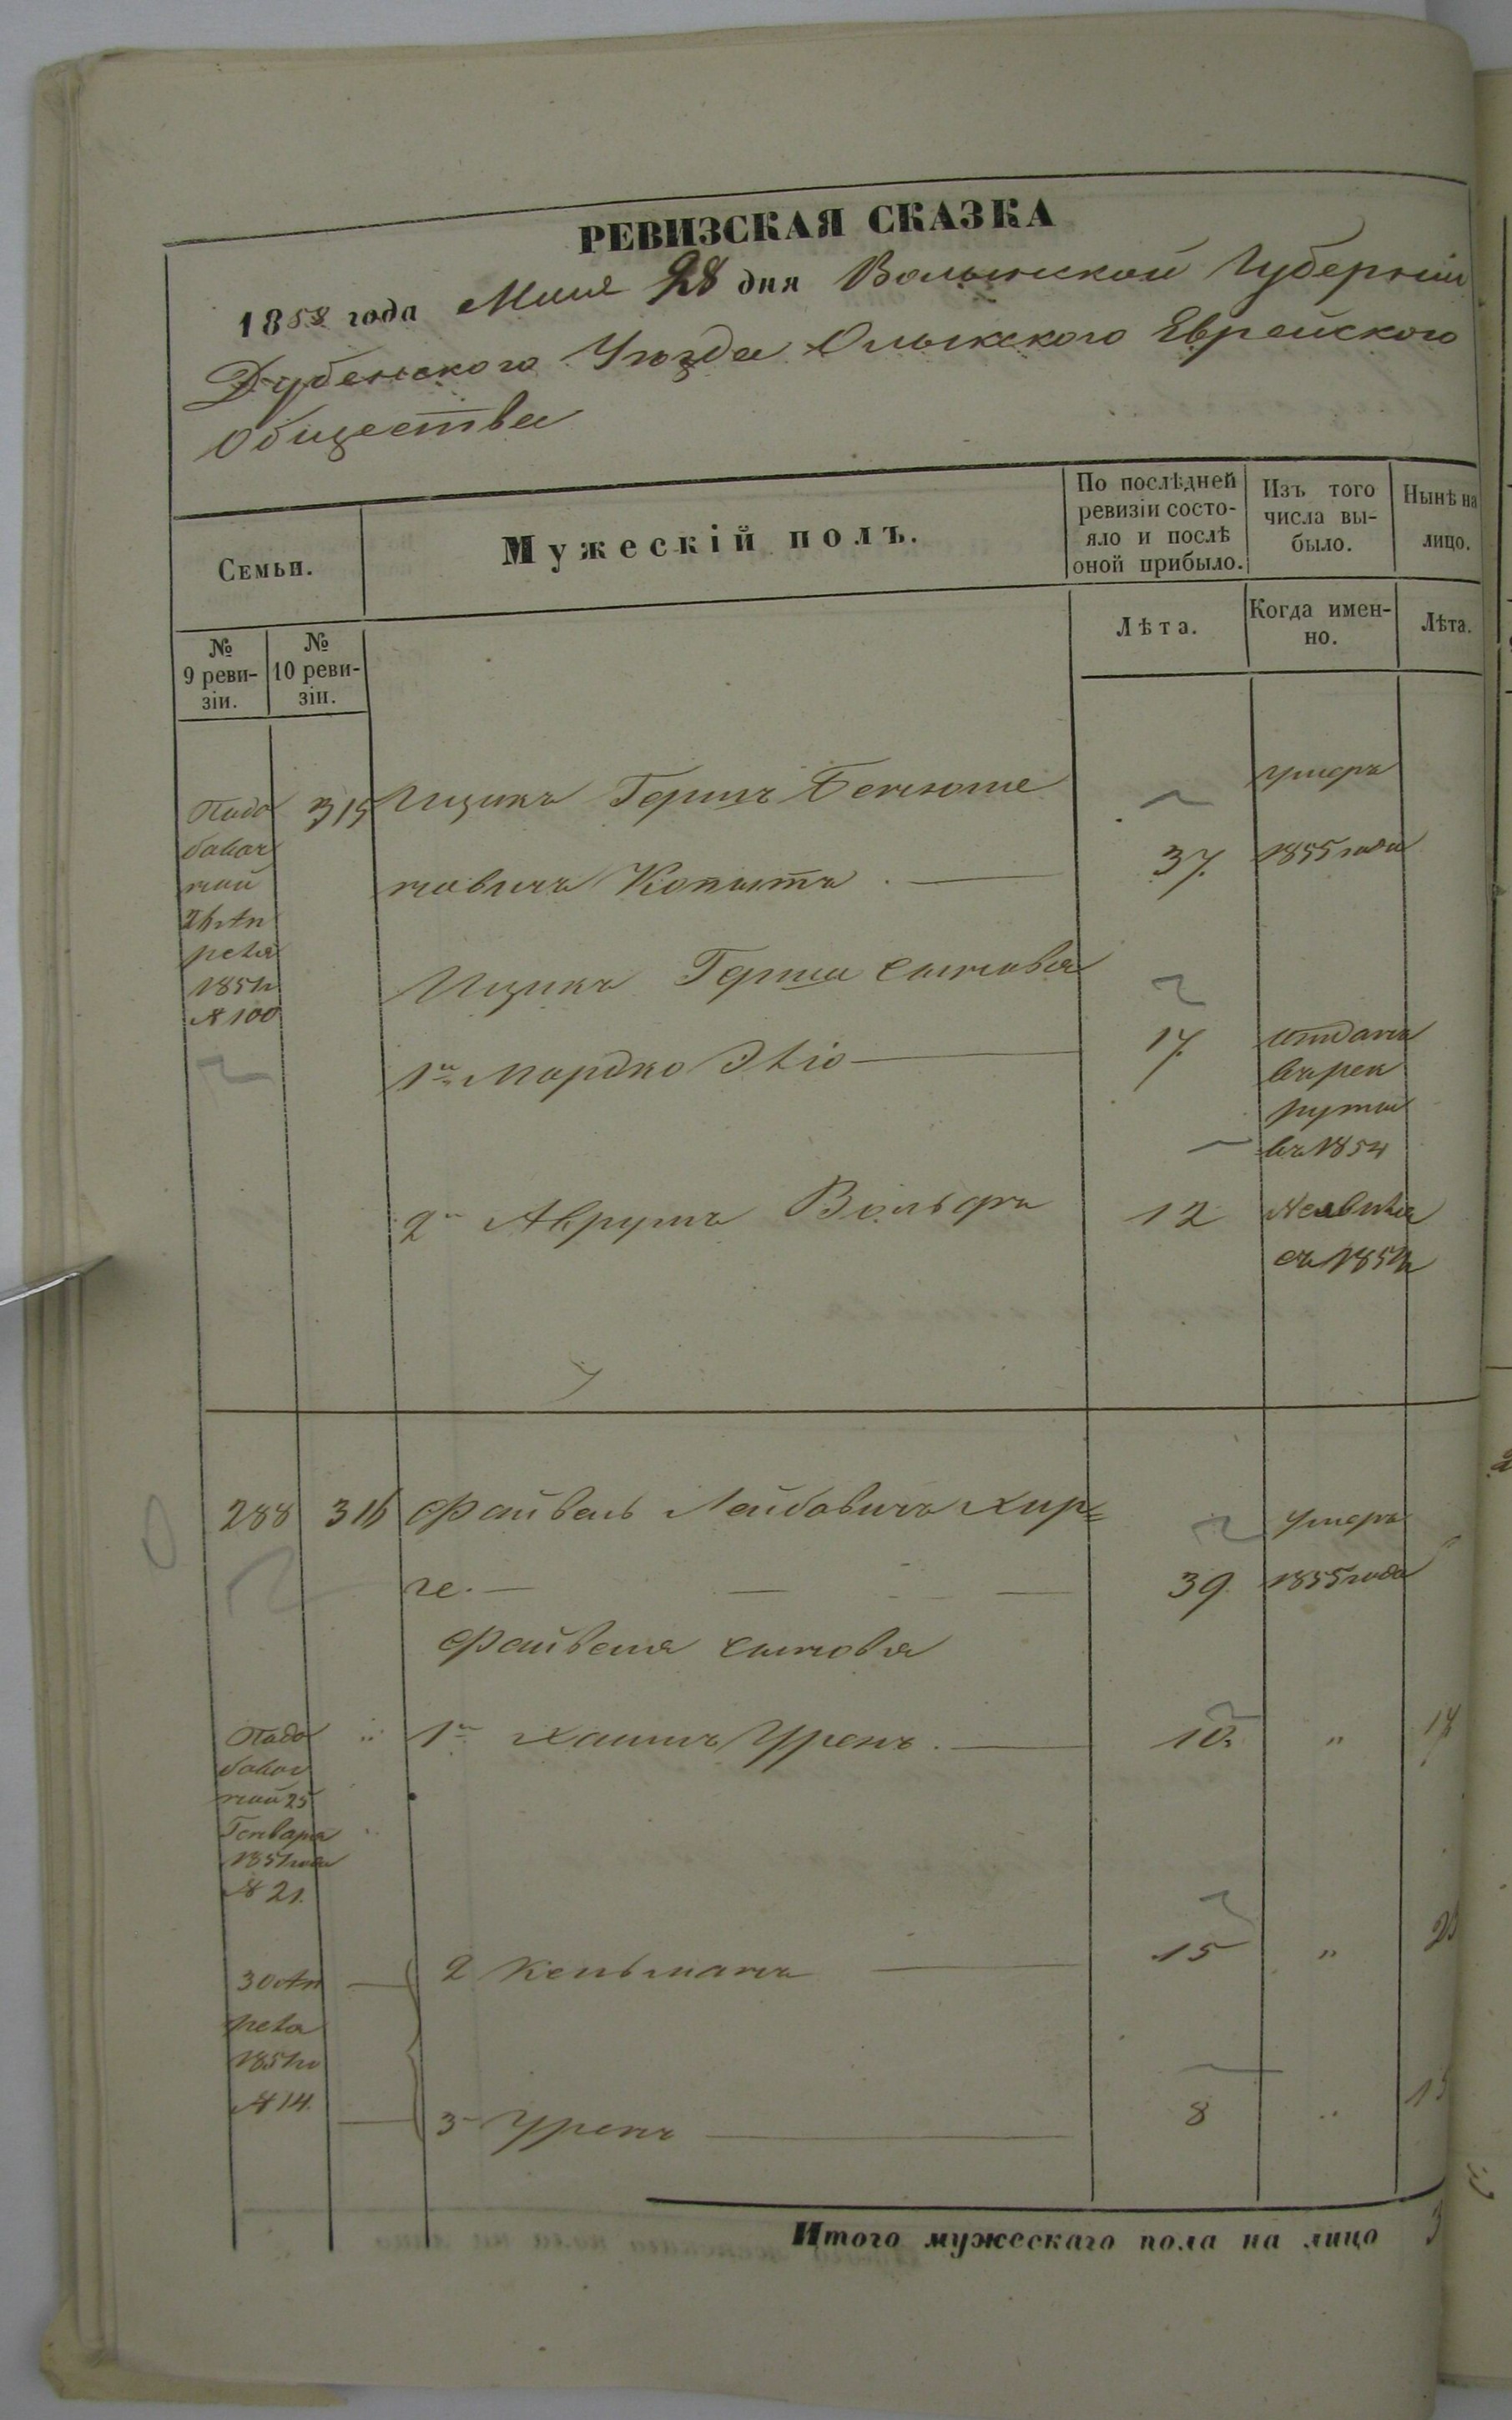 РЕВИЗСКАЯ СКАЗКА
1858 года Маия 28 дня Волынской Губерніи
Дубенского Уѣзда Олыкского Еврейского
Общества
Семьи.
Мужескій полъ.
По послѣдней ревизіи состо-
яло и послѣ
оной прибыло.
Изъ того
числа вы-
было.
Нынѣ на
лицо.
№
9 реви-
зіи.
№
10 реви-
зіи.
Лѣта.
Когда имен-
но.
Лѣта.
По до
бавоч
ной
26 Ап
реля
185
№ 100
315
Ицикъ Гершъ Бенюме
новичъ Копытъ
37.
умеръ
1855 года
Ицикъ Герша сыновья
1й Мордко Эліо
17
отданъ
въ рек
руты
въ 1854
2й Аврумъ Вольфъ
12
Неявился
съ 185
288 316 Файвель Лейбовичъ Хир=
ге.
39
умеръ
1855 года
Файвеля сыновья
По до
бавоч
ной 25
Генваря
1851 года
№ 21.
1й Хаимъ Уренъ.
10.
"
17
30 Ап
реля
185
№ 14.
2 Кельманъ
15
"
3 Уренъ
8
"
15
Итого мужескаго пола на лицо 3